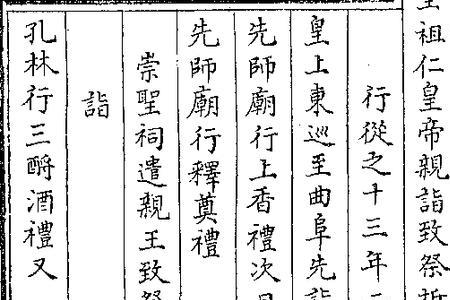 祖仁皇帝親詣致祭
行從之十三年
皇上東巡至曲阜先詣
先師廟行上香禮次日
先師廟行釋奠禮
崇聖祠遣親王致祭
詣
孔林行三酹酒禮又